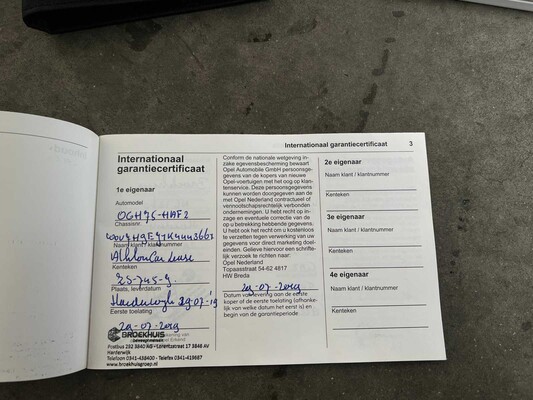 Internationaal garantiecertificaat 3
Internationaal
garantiecertificaat
1e eigenaar
Automodel
Chassisnr.
Naam klant / klantnummer
Kenteken
Plaats, leverdatum
Harderwijk 29-07-'19
Eerste toelating
29-07-2019
BROEKHUIS
Postbus 292 3840 AG - Lorentzstraat 17 3846 AV
Harderwijk
Telefoon 0341-438400 - Telefax 0341-419687
www.broekhuisgroep.nl
Conform de nationale wetgeving in-
zake egevensbescherming bewaart
Opel Automobile GmbH persoonsge-
gevens van de kopers van nieuwe
Opel-voertuigen met het oog op klan-
tenservice. Deze persoonsgegevens
kunnen worden doorgegeven aan de
met Opel Nederland contractueel of
vennootschapsrechtelijk verbonden
ondernemingen. U hebt recht op in-
zage en eventuele correctie van de
op u betrekking hebbende gegevens.
U hebt ook het recht om u kosteloos
te verzetten tegen verwerking van uw
gegevens voor direct marketing doel-
einden. Gelieve hiervoor een schrifte-
lijk verzoek te richten naar:
Opel Nederland
Topaasstraat 54-62 4817
HW Breda
29-07-2019
Datum van levering aan de eerste
koper of de eerste toelating (afhanke-
lijk van welke datum het eerst is) en
begin van de garantieperiode
2e eigenaar
Naam klant / klantnummer
Kenteken
3e eigenaar
Naam klant / klantnummer
Kenteken
4e eigenaar
Naam klant / klantnummer
Kenteken